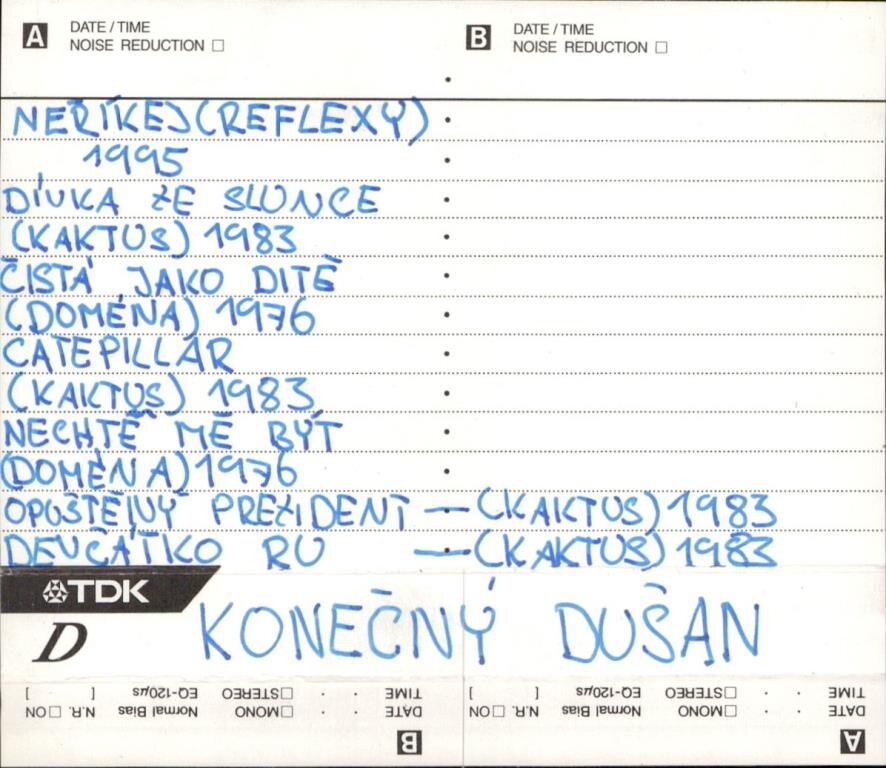 A DATE / TIME
NOISE REDUCTION
B DATE / TIME
NOISE REDUCTION
NEŘÍKEJ (REFLEXY)
1995
DÍVKA ZE SLUNCE
(KAKTUS) 1983
ČISTÁ JAKO DITĚ
(DOMÉNA) 1976
CATEPILLAR
(KAKTUS) 1983
NECHTĚ MĚ BÝT
(DOMÉNA) 1976
OPUŠTĚNÝ PREZIDENT — (KAKTUS) 1983
DEVČÁTKO RU — (KAKTUS) 1983
TDK
D
KONEČNÝ DUŠAN
A
DATE · · MONO Normal Bias N.R. ON
TIME · · STEREO EQ-120µs [ ]
B
DATE · · MONO Normal Bias N.R. ON
TIME · · STEREO EQ-120µs [ ]